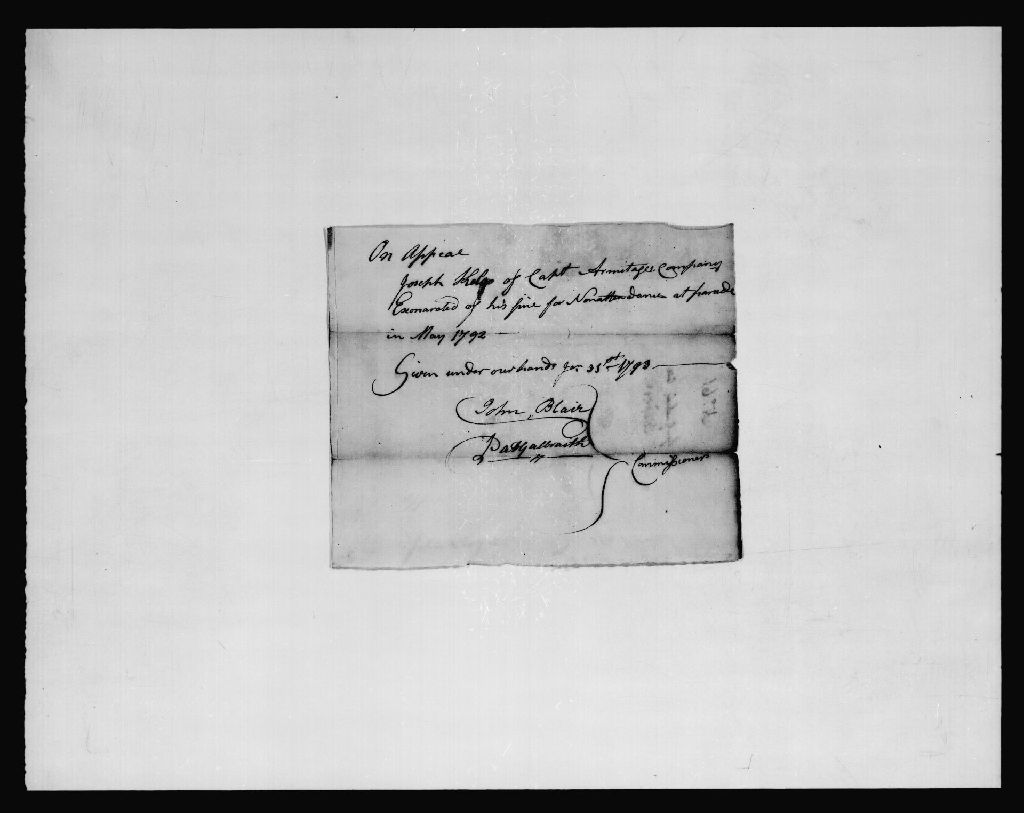 On Appeal
Joseph of Capt Armitages Company
Exonarated of his fine for Nonattendance at parade
in May 1792
Given under our hands Jar 31st 1793
John Blair
Pat Galbraith
Commissioners